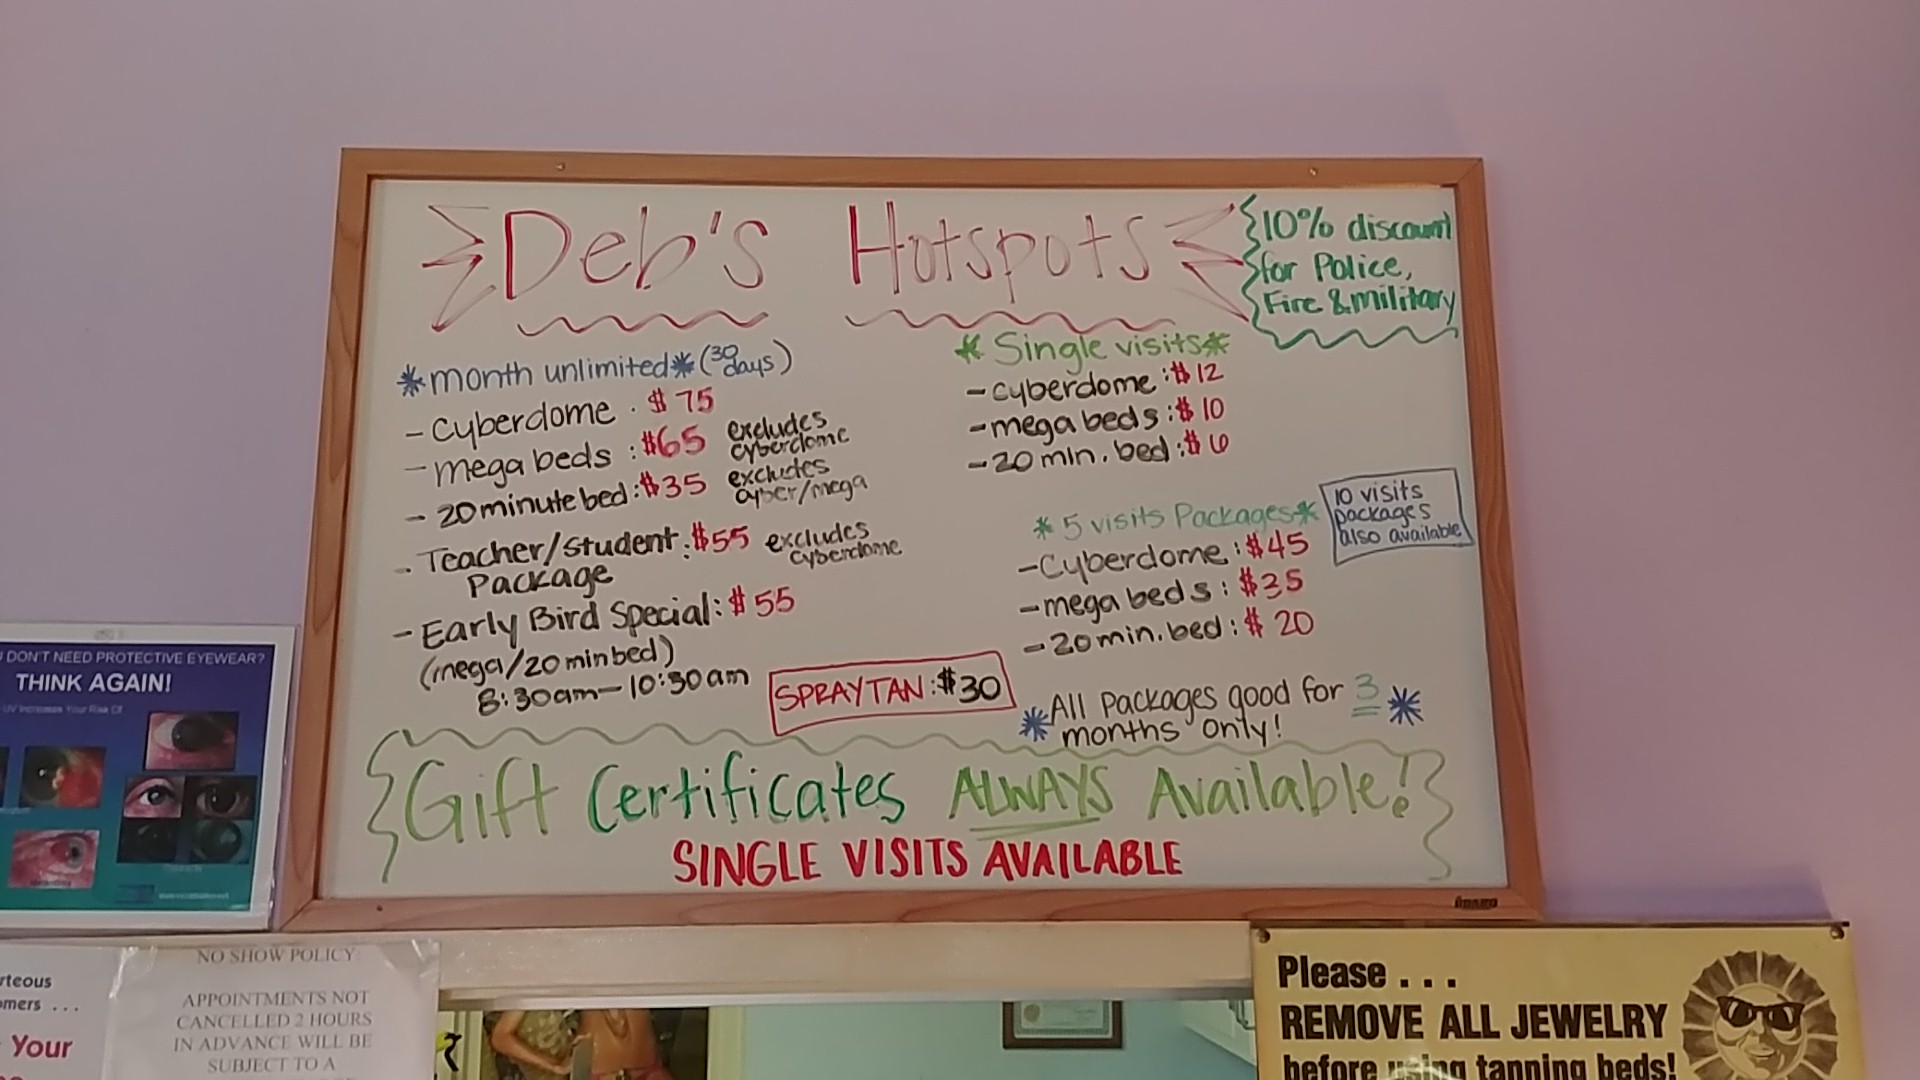 Deb's Hotspots
10% discount
for Police,
Fire & military
*month unlimited* (30 days)
- Cyberdome . $75
- mega beds : $65 excludes cyberdome
- 20 minute bed : $35 excludes cyber/mega
- Teacher/Student : $55 excludes cyberdome
Package
- Early Bird Special: $55
(mega/20 min bed)
8:30am - 10:30am
SPRAY TAN: $30
* Single visits *
- cyberdome : $12
- mega beds : $10
- 20 min. bed : $6
* 5 visits Packages *
- Cyberdome : $45
- mega beds : $35
- 20 min. bed : $20
10 visits
packages
also available
* All Packages good for 3 *
months only!
Gift Certificates ALWAYS Available!
SINGLE VISITS AVAILABLE
DON'T NEED PROTECTIVE EYEWEAR?
THINK AGAIN!
UV Increases Your Risk Of
NO SHOW POLICY
APPOINTMENTS NOT
CANCELLED 2 HOURS
IN ADVANCE WILL BE
SUBJECT TO A
Your
Please . . .
REMOVE ALL JEWELRY
before using tanning beds!